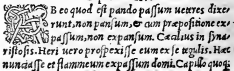 AB eo quod est pando passum veteres dixe
runt, non pansum, & cum præpositione ex
passum, non expansum. Cæcilius in syna
ristosis. Heri uero prospexisse eum ex te gulis. Hæc
nunciasse et flammeum expassum domi. Capillo quoq;